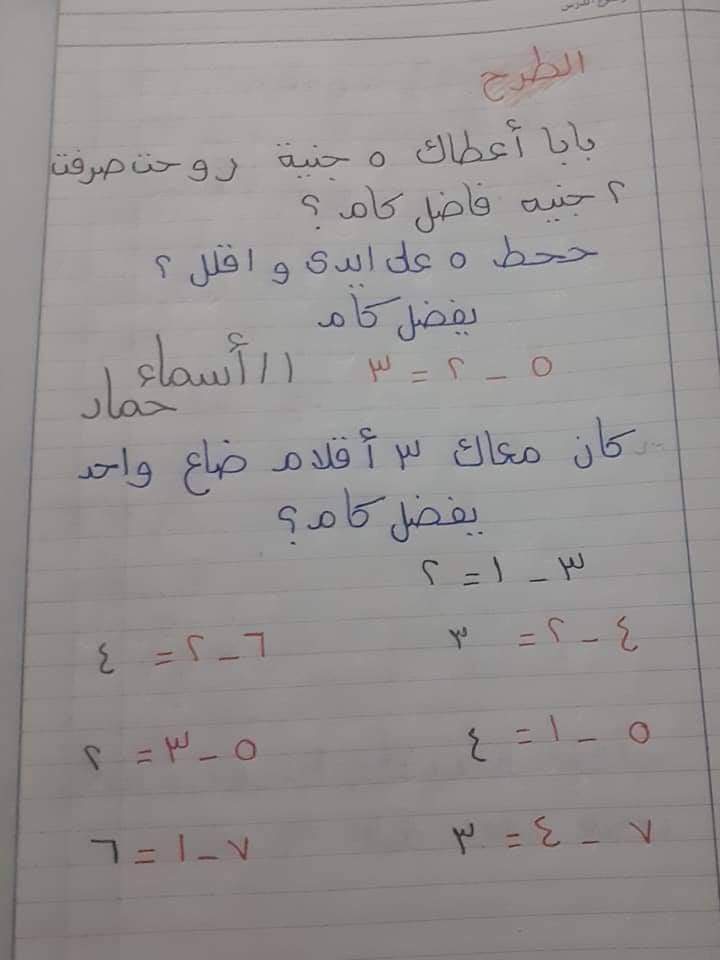 الطرح
بابا أعطاك ٥ جنية روحت صرفت
٢ جنيه فاضل كام ؟
ححط ٥ على ايدى و اقلل ٢
يفضل كام
٥ - ٢ = ٣ ١١ أسماء
حمار
كان معاك ٣ أقلام ضاع واحد
يفضل كام ؟
٣ - ١ = ٢
٤ - ٢ = ٣ ٦ - ٢ = ٤
٥ - ١ = ٤ ٥ - ٣ = ٢
٧ - ٤ = ٣ ٧ - ١ = ٦